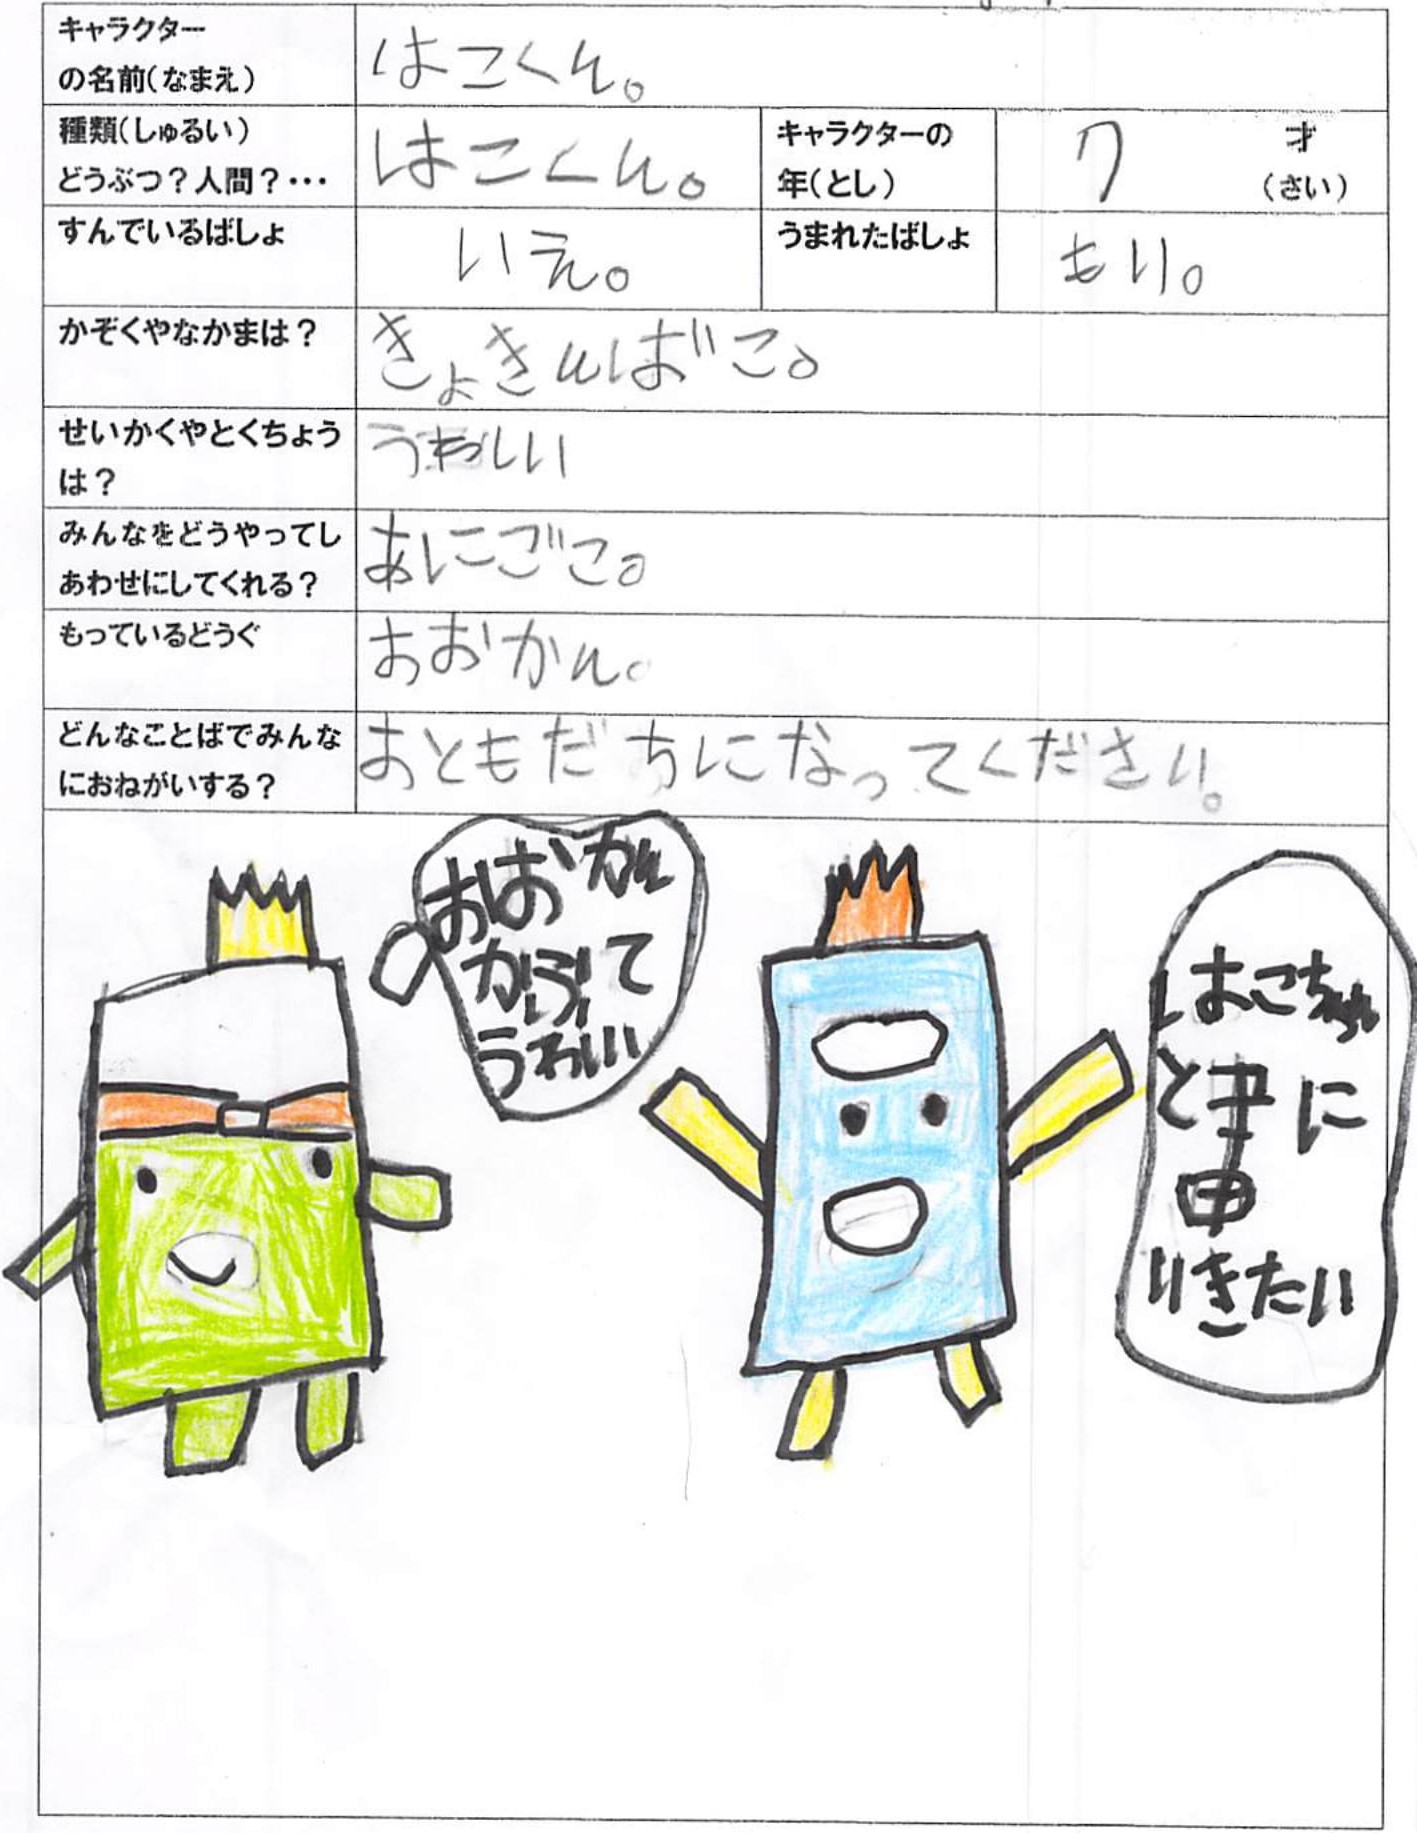 キャラクター
の名前(なまえ)
はこくん。
種類(しゅるい)
どうぶつ?人間?・・・
はこくん。
キャラクターの
年(とし)
7
才
(さい)
すんでいるばしょ
いえ。
うまれたばしょ
もり。
かぞくやなかまは?
きょきんばこ。
せいかくやとくちょう
は?
うわしい
みんなをどうやってし
あわせにしてくれる?
あにごご。
もっているどうぐ
おおかん。
どんなことばでみんな
におねがいする?
おともだちになってください。
おおかん
かぶて
うわしい
はこちゃん
と
に
りきたい